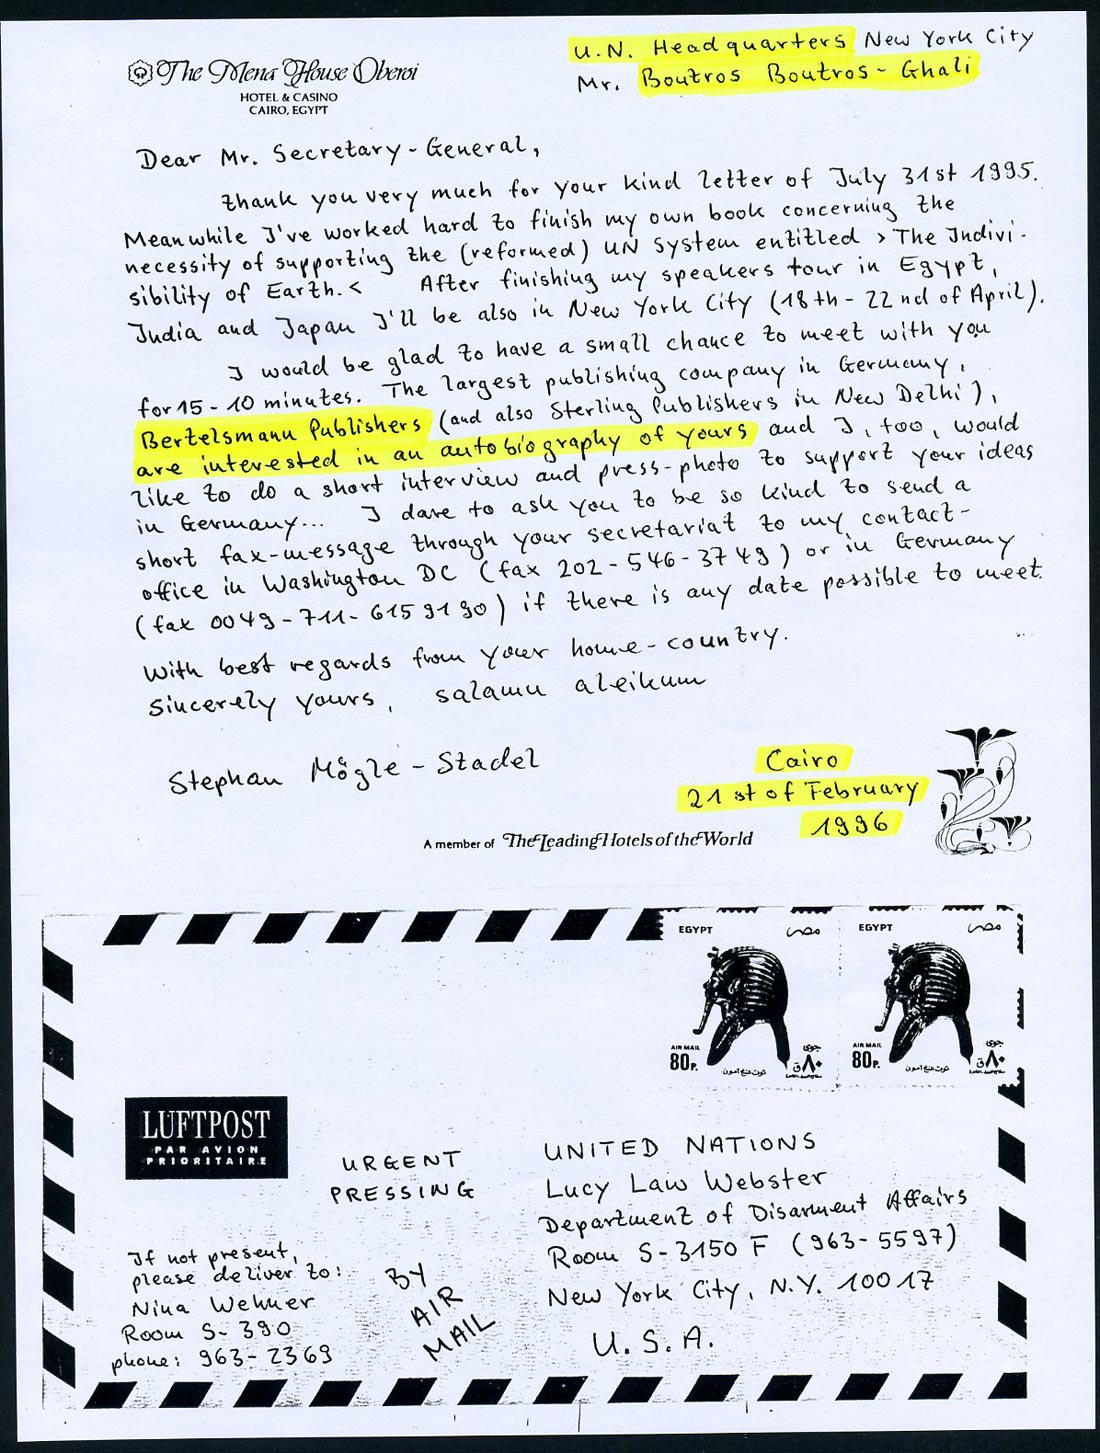 The Mena House Oberoi
HOTEL & CASINO
CAIRO, EGYPT
U.N. Headquarters New York City
Mr. Boutros Boutros-Ghali
Dear Mr. Secretary-General,
thank you very much for your kind letter of July 31st 1995.
Meanwhile I've worked hard to finish my own book concerning the
necessity of supporting the (reformed) UN System entitled >The Indivi-
sibility of Earth.< After finishing my speakers tour in Egypt,
India and Japan I'll be also in New York City (18th-22nd of April).
I would be glad to have a small chance to meet with you
for 15-10 minutes. The largest publishing company in Germany,
Bertelsmann Publishers (and also Sterling Publishers in New Delhi),
are interested in an autobiography of yours and I, too, would
like to do a short interview and press-photo to support your ideas
in Germany... I dare to ask you to be so kind to send a
short fax-message through your secretariat to my contact-
office in Washington DC (fax 202-546-3749) or in Germany
(fax 0049-711-6159190) if there is any date possible to meet.
With best regards from your home-country.
Sincerely yours, salamu aleikum
Stephan Mögle-Stadel
Cairo
21st of February
1996
A member of The Leading Hotels of the World
EGYPT مصر
AIR MAIL
80P.
توت عنخ آمون
جوى
٨٠ق
EGYPT مصر
AIR MAIL
80P.
توت عنخ آمون
جوى
٨٠ق
LUFTPOST
PAR AVION
PRIORITAIRE
URGENT
PRESSING
UNITED NATIONS
Lucy Law Webster
Department of Disarment Affairs
Room S-3150 F (963-5597)
New York City, N.Y. 10017
U.S.A.
If not present,
please deliver to:
Nina Wehner
Room S-390
phone: 963-2369
BY
AIR
MAIL